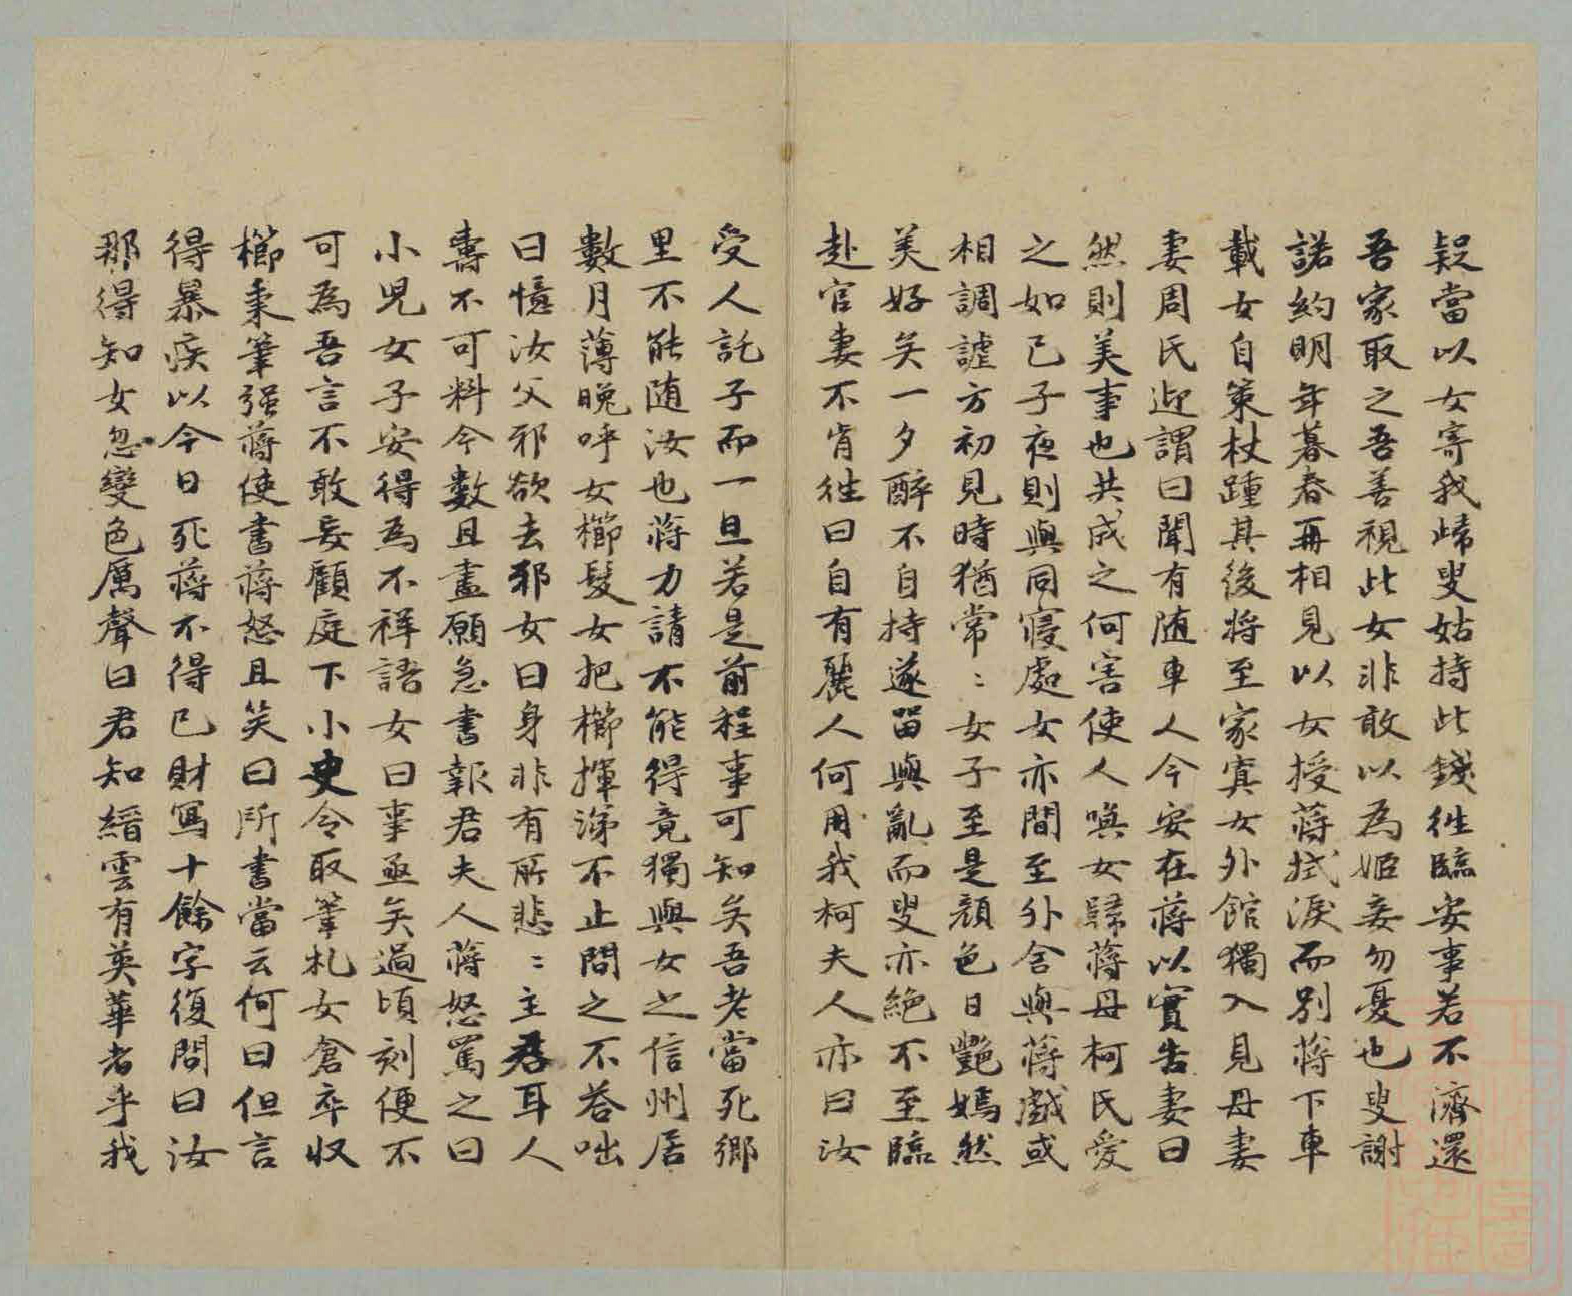 疑當以女寄我歸叟姑持此錢往臨安事若不濟還
吾家取之吾善視此女非敢以為姬妾勿憂也叟謝
諾約明年暮春再相見以女授蔣拭淚而別蔣下車
載女自策杖踵其後將至家寘女外館獨入見母妻
妻周氏迎謂曰聞有随車人今安在蔣以實告妻曰
然則美事也共成之何害使人喚女歸蔣母柯氏愛
之如已子夜則與同寢處女亦間至外舍與蔣戲或
相調謔方初見時猶常〻女子至是顏色日艷嫣然
美好矣一夕醉不自持遂畱與亂而叟亦絕不至臨
赴官妻不肯往曰自有麗人何用我柯夫人亦曰汝
受人託子而一旦若是前程事可知矣吾老當死鄉
里不能随汝也蔣力請不能得竟獨與女之信州居
數月薄晚呼女櫛髮女把櫛揮涕不止問之不荅咄
曰憶汝父邪欲去邪女曰身非有所悲〻主君耳人
壽不可料今數且盡願急書報君夫人蔣怒罵之曰
小兒女子安得為不祥語女曰事亟矣過頃刻便不
可為吾言不敢妄顧庭下小史令取筆札女倉卒収
櫛秉筆强蔣使書蔣怒且笑曰所書當云何曰但言
得暴疾以今日死蔣不得已財寫十餘字復問曰汝
那得知女忽變色厲聲曰君知縉雲有英華者乎我